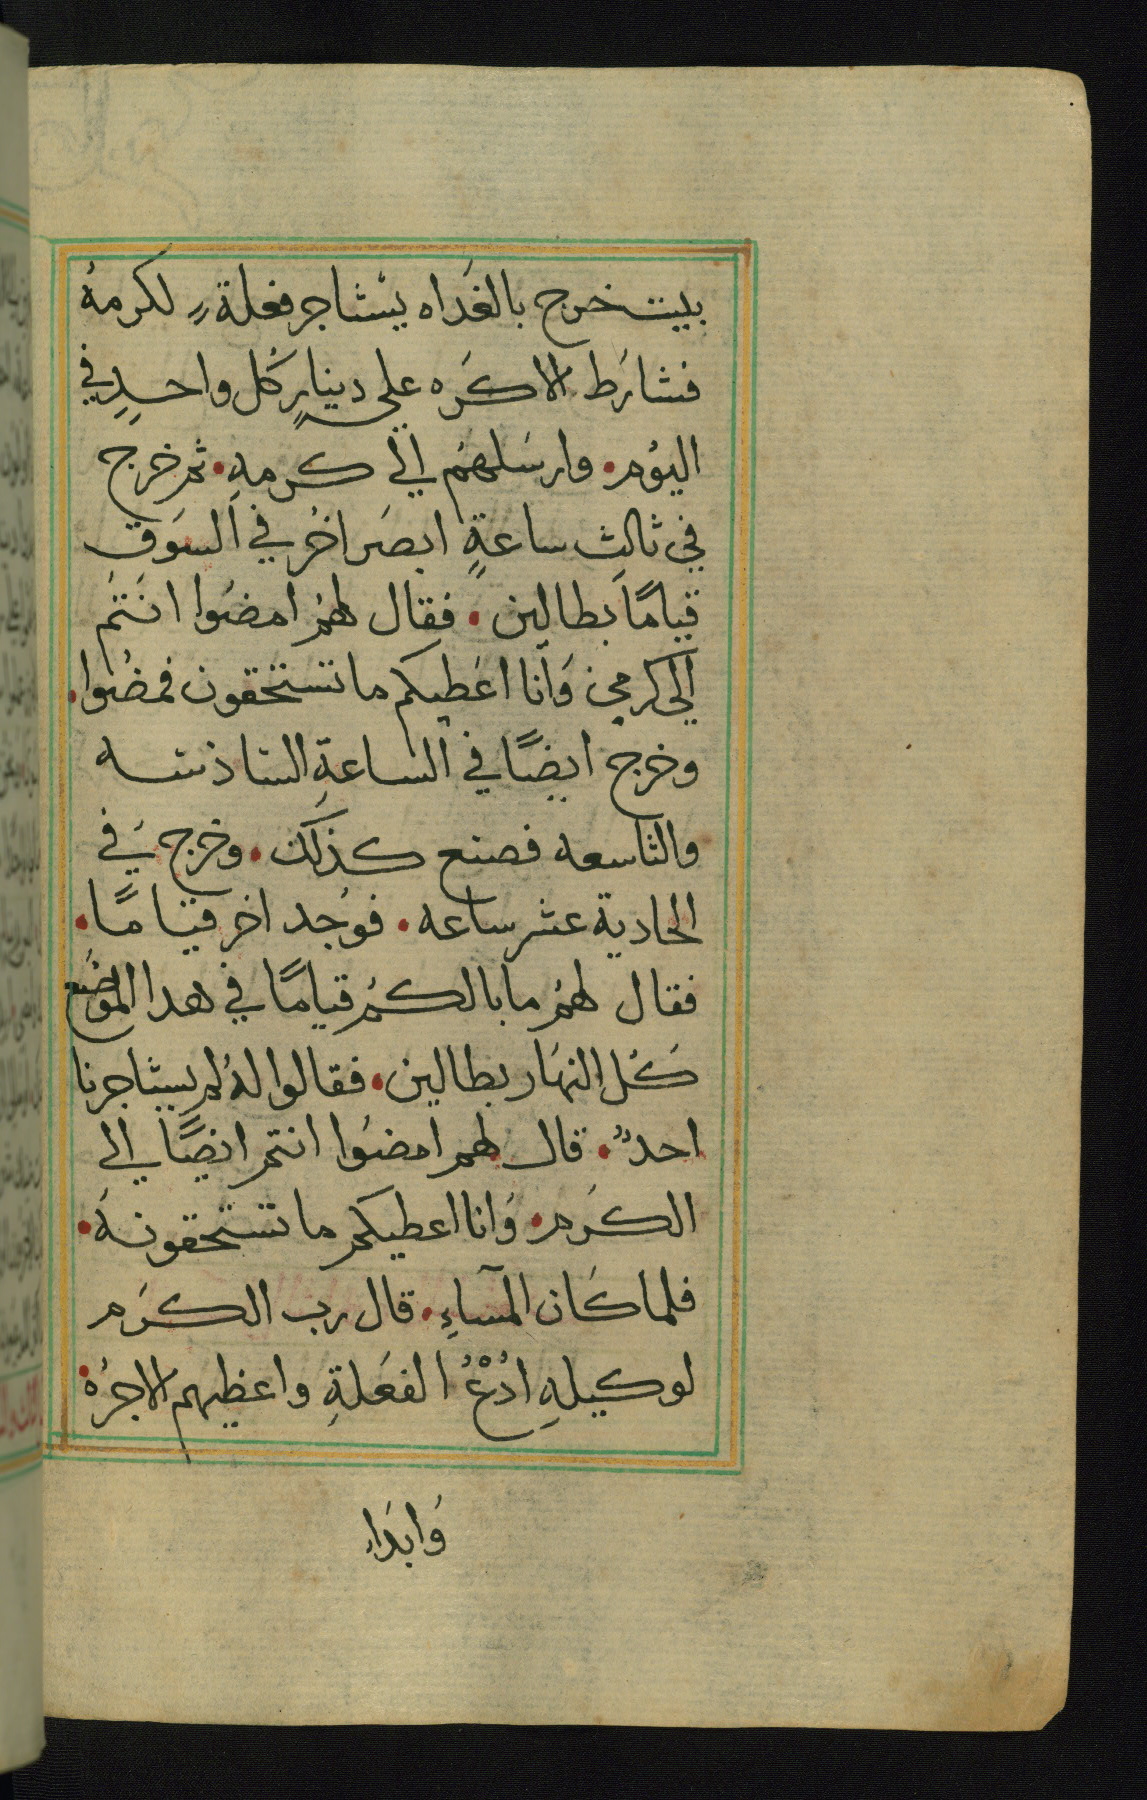 بيت خرج بالغداه يستاجر فعلة لكرمهُ
فشارَط الاكَره علي دينارٍ كُل واحدٍ في
اليوُم • وارسَلهمُ الي كرمهِ • ثم خرج
في ثالث ساعةٍ ابصَر اخُر في السَوق
قيامًا بَطالين • فقال لهمُ امضوُا انتمُ
الي كرمي وَانا اعَطيكم ما تستحقون فمضُوا •
وخرج ايضًا في الساعةِ السادسه
والتاسعه فصنع كذلَك • وخرج في
الحادية عشر ساعه • فوُجد اخر قيامًا •
فقال لهمُ ما بالكمُ قيامًا في هدا الموضَع
كَل النهَار بطالين • فقالوا لهُ لم يستاجرنا
احدٌ • قال لهم امضوُا انتم ايضًا الي
الكرَم • وَانا اعطيكم ما تستحقونهَ •
فلما كاَن المسآءِ • قال رب الكرَم
لوكيلهِ ادُعُ الفعَلةِ واعطيهم الاجرُه •
وَابدَاء